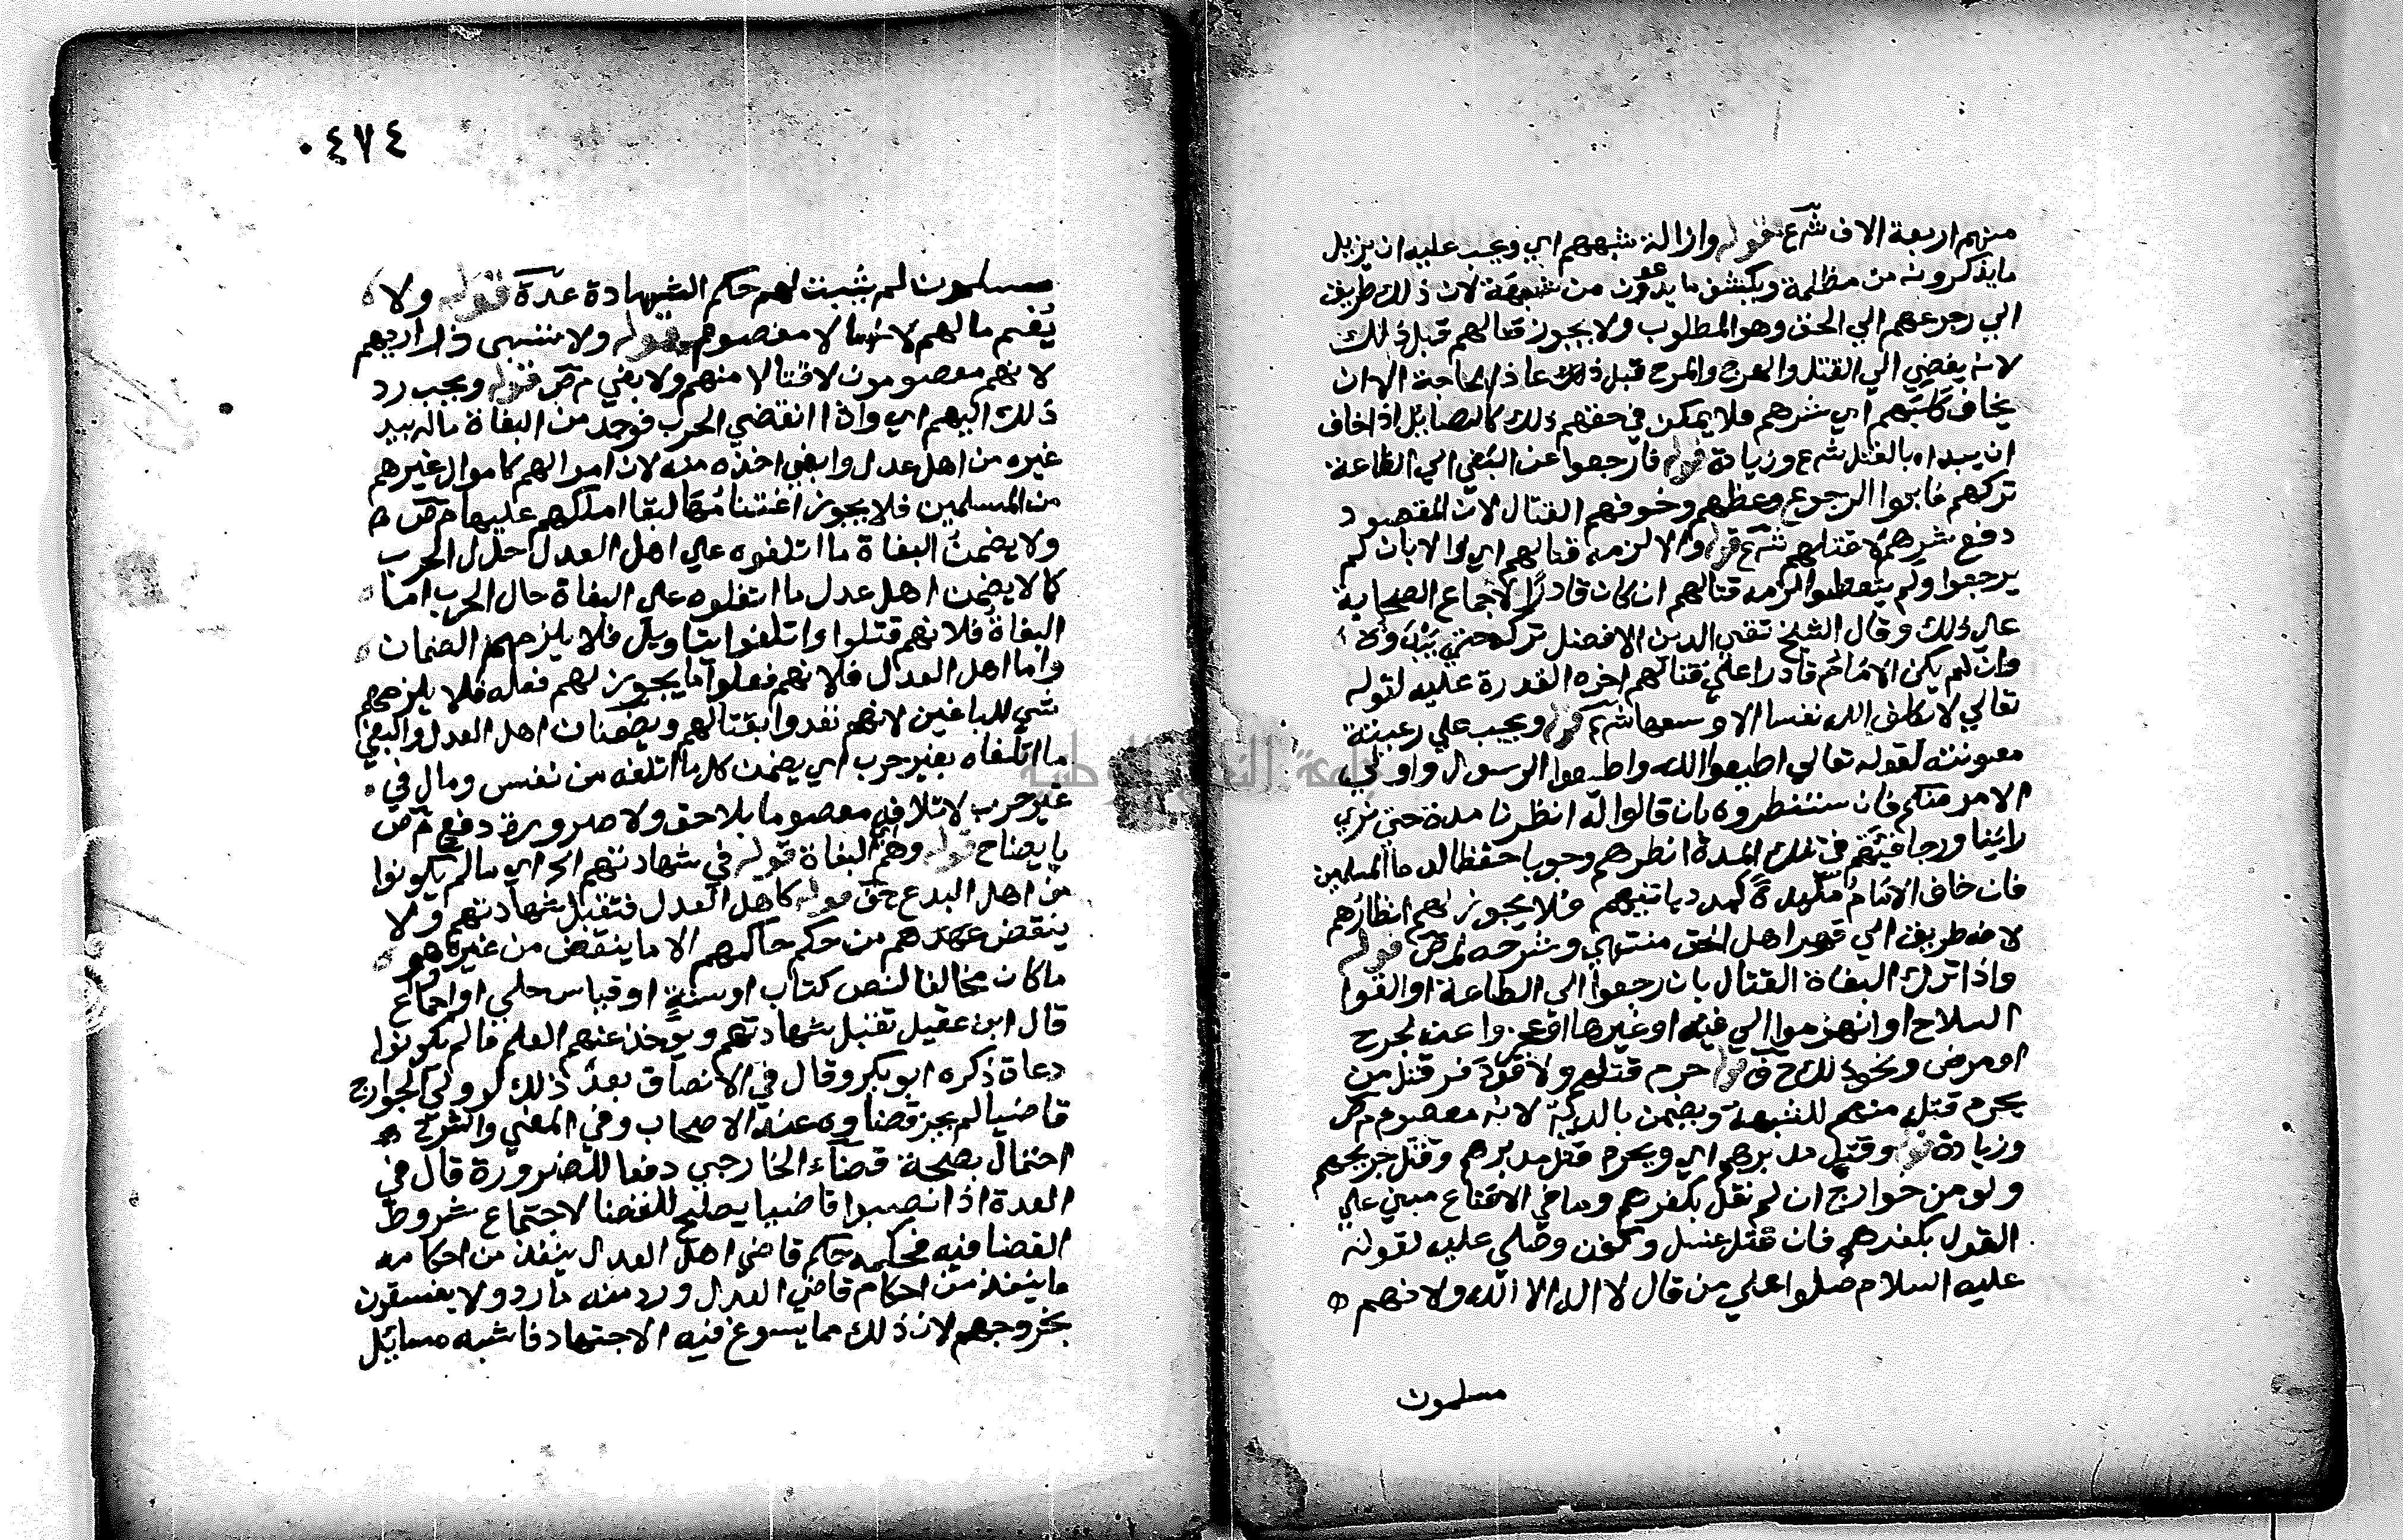 منهم اربعة الاف شرع قوله وازالة شبههم اي ويجب عليه ان يزيل
ما يذكرونه من مظلمة ويكشف ما يدعون من شبهة لان ذلك طريق
الي رجوعهم الي الحق وهو المطلوب ولا يجوز قتالهم قبل ذلك
لانه يفضي الي القتل والهرج والمرج قبل ذلك الحاجة الا ان
يخاف كلبهم اي شرهم فلا يمكن في حقهم ذلك كالصايل اذا خاف
ان يبداه بالقتل شرع وزيادة قوله فا رجعوا عن البغي الي الطاعة
تركهم فا ابوا الرجوع وعظهم وخوفهم القتال لان المقصود
دفع شرهم لا قتلهم شرع قوله والا لزمه قتالهم اي والا بان لم
يرجعوا ولم يتعظوا لزمه قتالهم ان كان قادرًا لاجماع الصحابة
علي ذلك وقال الشيخ تقي الدين الافضل تركه حتي
وان لم يكن الامام قادرا علي قتالهم اخره القدرة عليه لقوله
تعالي لا يكلف الله نفسا الا وسعها شرع قوله ويجب علي رعيته
معونته لقوله تعالي اطيعوا الله واطيعوا الرسول واولي
الامر منكم فان ستنظروه بان قالوا له انظرنا مدة حتي نري
رائينا ورجا فيئهم في تلك المدة انظرهم وجوبا حفظا لدماء المسلمين
فان خاف الامام مكيدة كمدد ياتيهم فلا يجوز لهم انظارهم
لانه طريق الي قهر اهل الحق منتهي وشرحه لمص قوله
واذا ترك البغاة القتال بان رجعوا الي الطاعة او القوا
السلاح او انهزموا الي فئة او غيرها او عجزوا عنه لجرح
او مرض ونحو ذلك ح ق قوله حرم قتلهم ولا قود فر قتل من
يحرم قتله منهم للشبهة ويضمن بالدية لانه معصوم م ص
وزيادة قوله وقتل مدبرهم اي ويحرم قتل مدبرهم وقتل جريحهم
ولو من خوارج ان لم نقل بكفرهم وما في الاقناع مبني علي
القول بكفرهم فان قتل غسل وكفن وصلي عليه لقوله
عليه السلام صلوا علي من قال لا اله الا الله ولانهم ه
مسلمون
٠٤٧٤
مسلمون لم يثبت لهم حكم الشهادة عدة قوله ولا ه
يغنم مالهم لانها لا معصوم قوله ولا تسبي ذراريهم
لانهم معصومون لا قتالا منهم ولا بغي م ص قوله ويجب رد
ذلك اليهم اي واذا انقضي الحرب فوجد من البغاة ماله بيد
غيره من اهل عدل وابغي اخذه منه لان اموالهم كاموال غيرهم
من المسلمين فلا يجوز اغتنامها لبقا املكهم عليها م ص ه
ولا يضمن البغاة ما اتلفوه علي اهل العدل احلال الحرب
كما لا يضمن اهل عدل ما اتلفوه علي البغاة حال الحرب اما
البغاة فلانهم قتلوا واتلفوا بتاويل فلا يلزمهم الضمان
واما اهل العدل فلانهم فعلوا ما يجوز لهم فعله فلا يلزمهم
شي للباغين لانهم نفدوا بقتالهم ويضمنان اهل العدل والبغي
ما اتلفاه بغير حرب اي يضمن كل ما اتلفه من نفس ومال في
غير حرب لاتلافه معصوما بلا حق ولا ضرورة دفع م ص
يا يضاح قوله وهم البغاة قوله في شهادتهم الخ اي مالم يكونوا
من اهل البدع ح ق قوله كاهل العدل فتقبل شهادتهم ولا
ينقض عهدهم من حكم حاكمهم الا ما ينقض من غيره وهو
ما كان مخالفا لنص كتاب او سنةٍ او قياس جلي او اجماع
قال ابن عقيل تقبل شهادتهم ويوخذ عنهم العلم ما لم يكونوا
دعاة ذكره ابو بكر وقال في الانصاف بعد ذلك لو ولي الخوارج
قاضيا لم يجز قضاوه عند الاصحاب وفي المغني والشرح
احتمال بصحة قضاء الخارجي دفعا للضرورة قال في
العدة اذا نصبوا قاضيا يصلح للقضا لاجتماع شروط
القضا فيه فحكمه حكم قاضي اهل العدل ينفذ من احكامه
ما ينفذ من احكام قاضي العدل ورد منه ما رد ولا يفسقون
بخروجهم لان ذلك مما يسوغ فيه الاجتهاد فاشبه مسايل